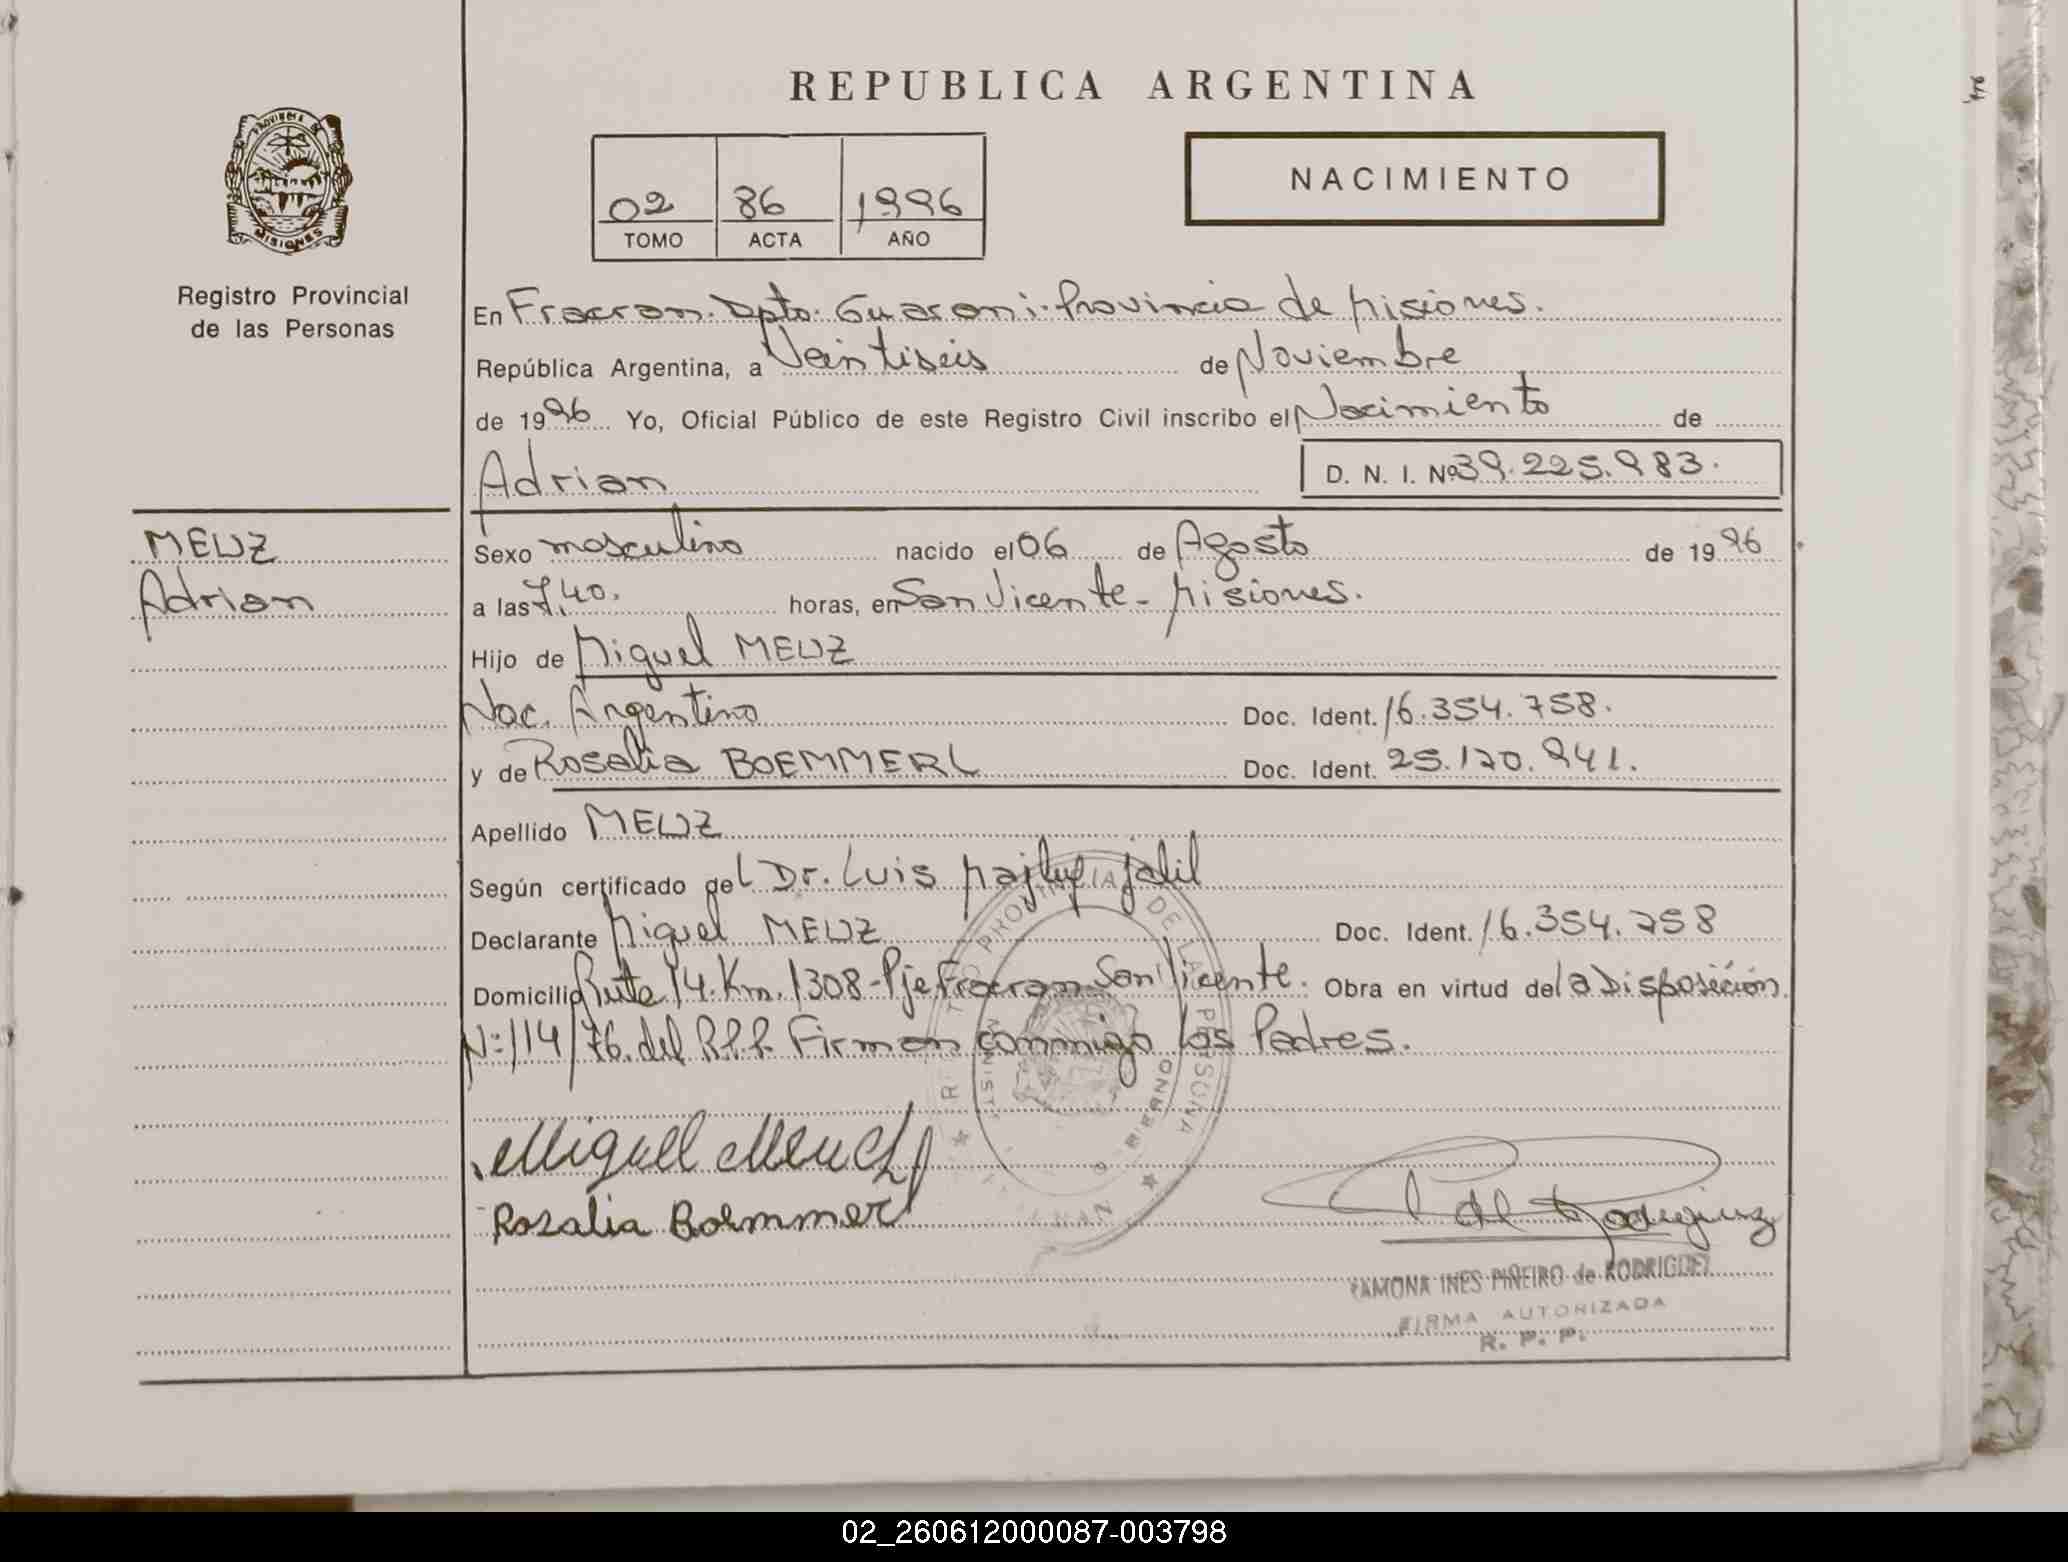 REPUBLICA ARGENTINA
PROVINCIA DE
MISIONES
Registro Provincial
de las Personas
02 86 1996
TOMO ACTA AÑO
NACIMIENTO
En Fracran. Dpto. Guarani. Provincia de Misiones.
República Argentina, a Veintiseis de Noviembre
de 1996 Yo, Oficial Público de este Registro Civil inscribo el Nacimiento de
Adrian D. N. I. Nº 39.225.983.
MEUZ
Adrian
Sexo masculino nacido el 06 de Agosto de 1996
a las 7,40. horas, en San Vicente - Misiones.
Hijo de Miguel MEUZ
Nac. Argentino Doc. Ident. 16.354.758.
y de Rosalia BOEMMERL Doc. Ident. 25.170.941.
Apellido MEUZ
Según certificado del Dr. Luis
Declarante Miguel MEUZ Doc. Ident. 16.354.758
Domicilio Ruta 14. Km. 1308 - Pje Fracran San Vicente. Obra en virtud de la Disposición
Nº 114/76. del R.P.P. Firman conmigo los Padres.
Miguel
Rosalia Boemmerl
Rodriguez
RAMONA INES PIÑEIRO de RODRIGUEZ
FIRMA AUTORIZADA
R. P. P.
02_260612000087-003798